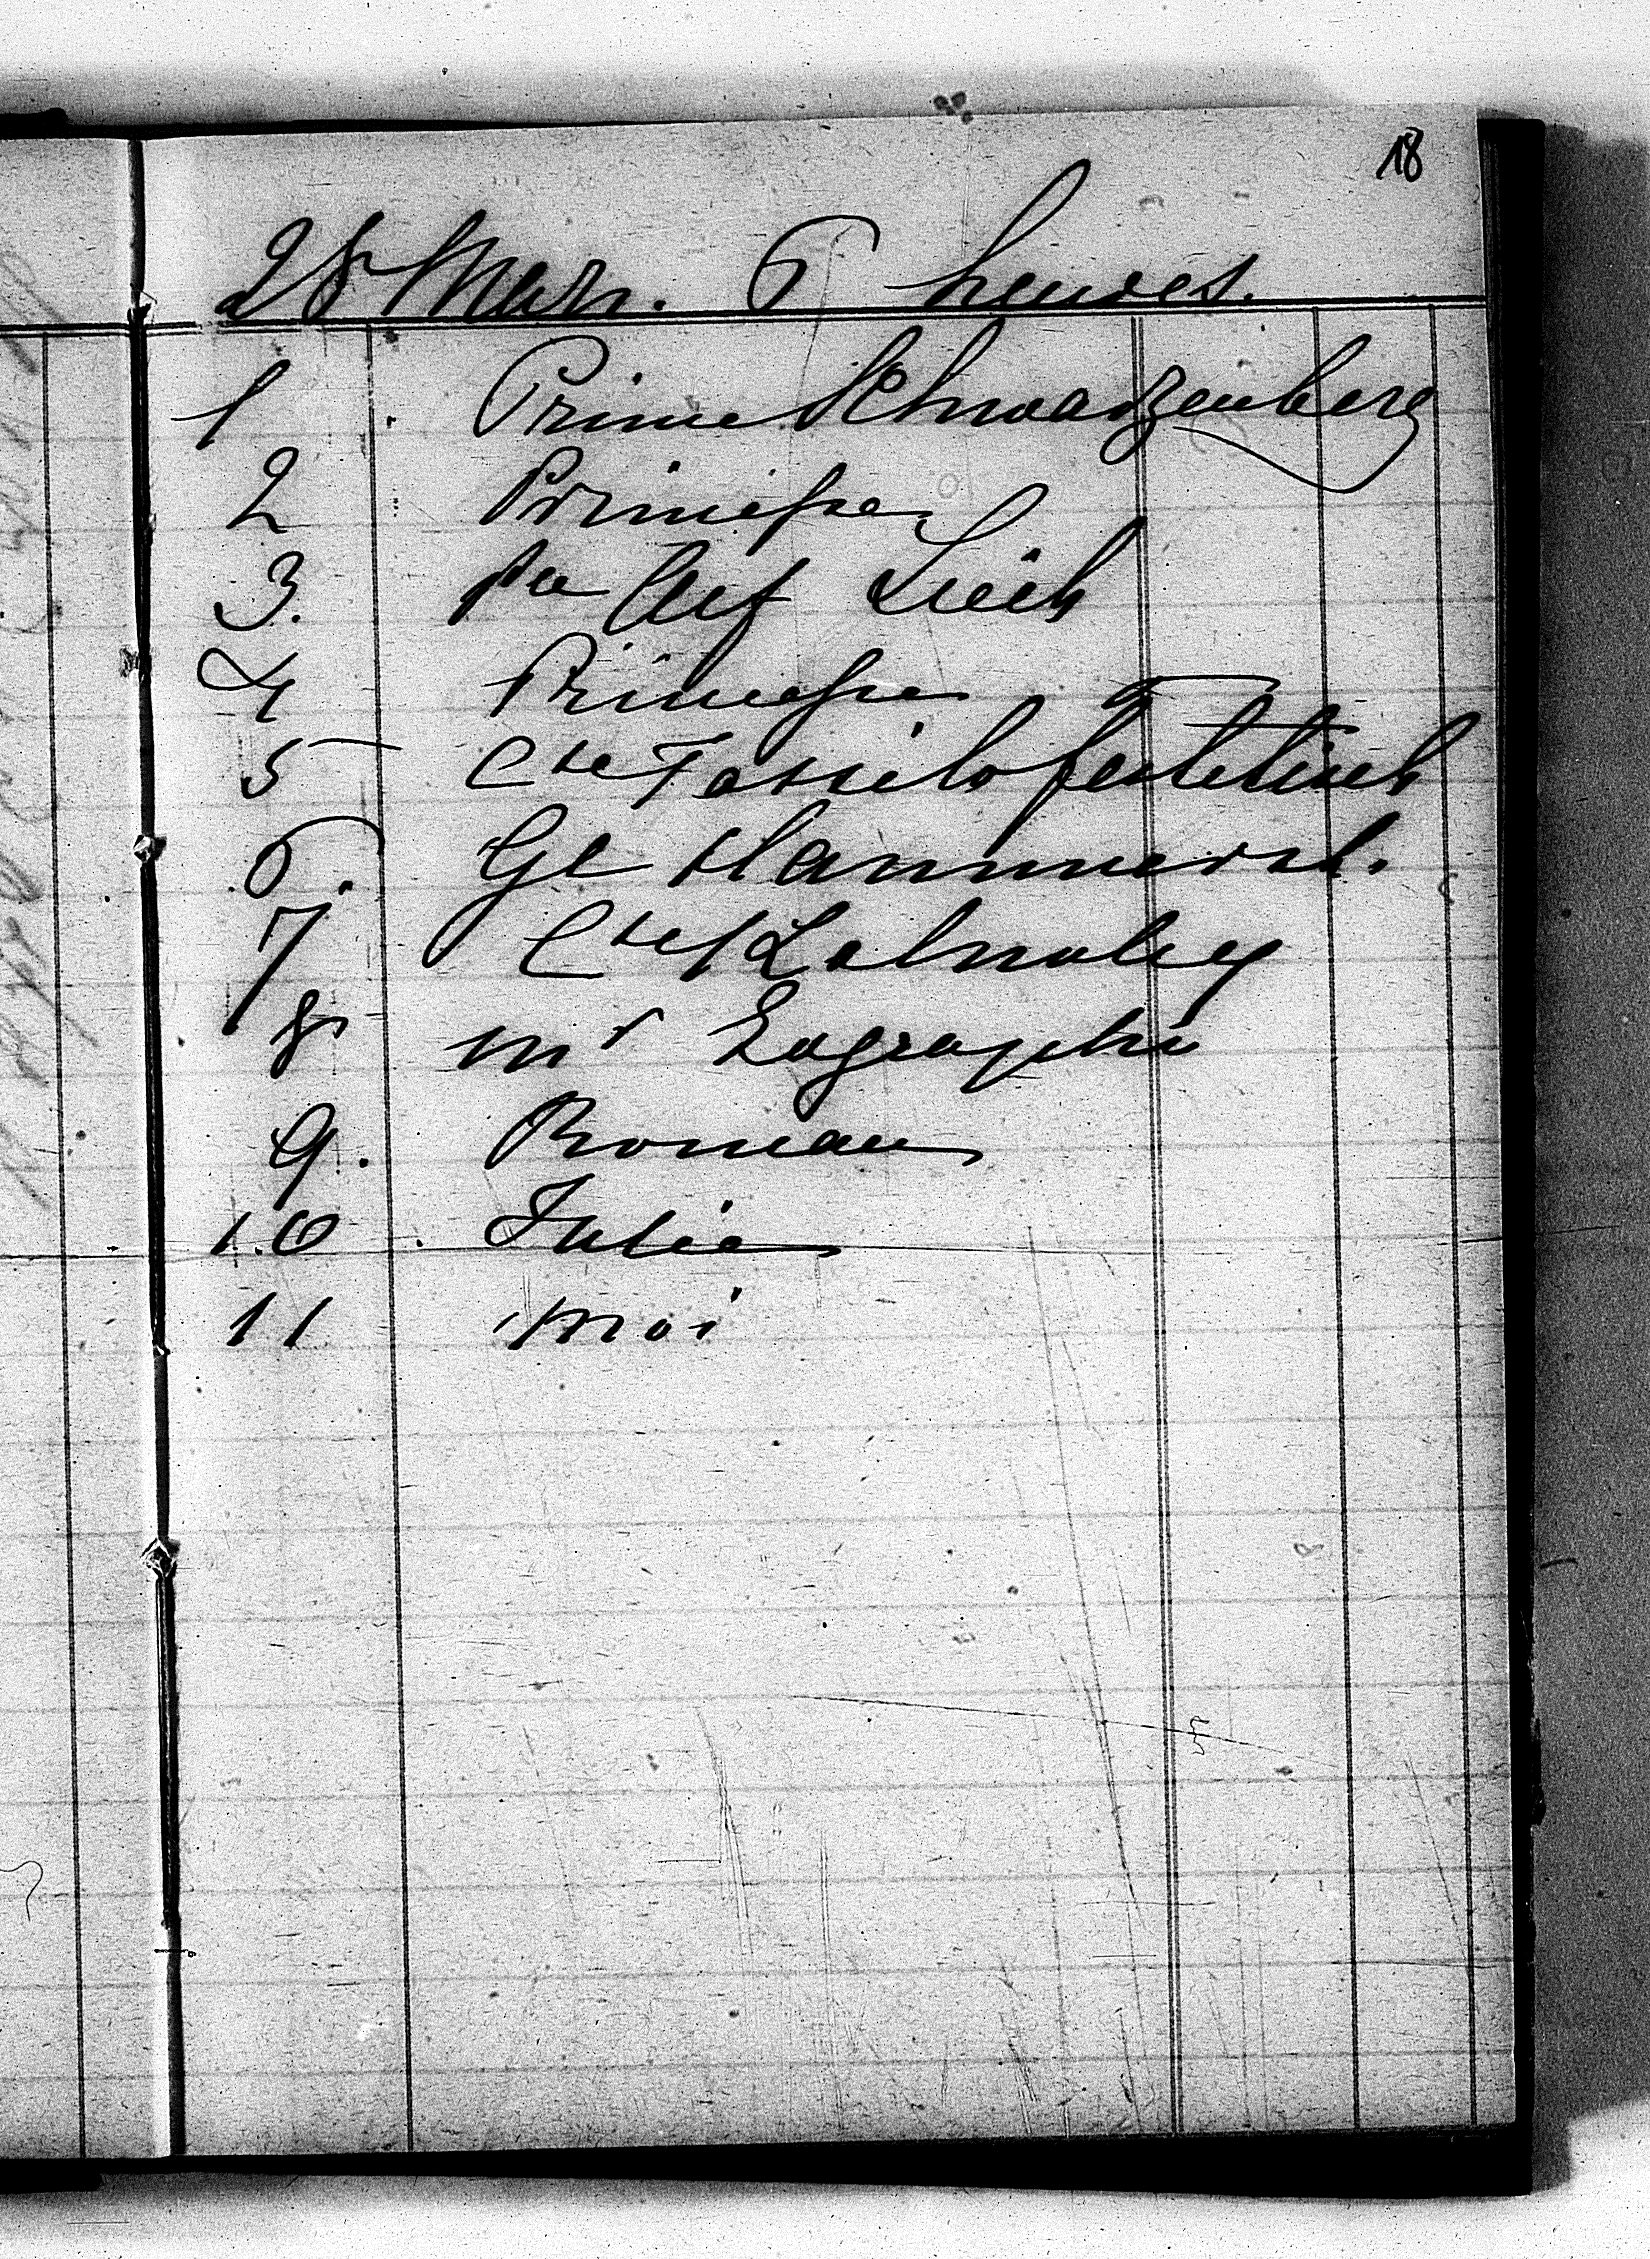 18
28 Mars. 6 heures.
1 Prince Schwarzenberg
2 Princesse
3. Pce Alf Liech
4 Princesse
5 Cte Tassilo Festetics
6. Gl
7 Cte Kalnoky
8 Mr Zographo
9. Roman
10 Julie
11 Moi